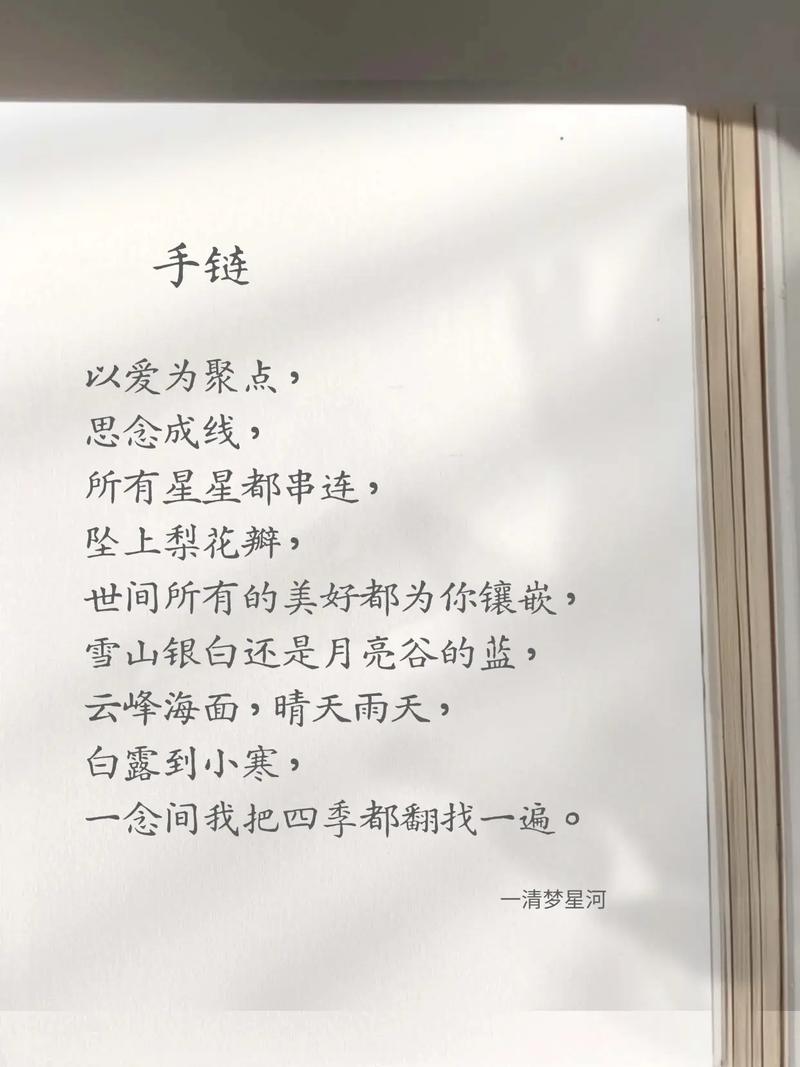 手链
以爱为聚点，
思念成线，
所有星星都串连，
坠上梨花瓣，
世间所有的美好都为你镶嵌，
雪山银白还是月亮谷的蓝，
云峰海面，晴天雨天，
白露到小寒，
一念间我把四季都翻找一遍。
一清梦星河